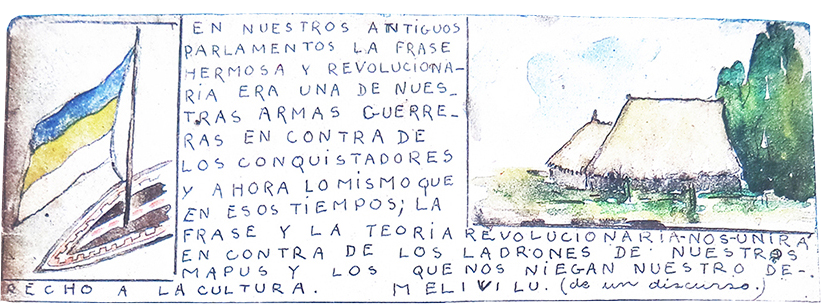 EN NUESTROS ANTIGUOS
PARLAMENTOS LA FRASE
HERMOSA Y REVOLUCIONA-
RIA ERA UNA DE NUES-
TRAS ARMAS GUERRE-
RAS EN CONTRA DE
LOS CONQUISTADORES
Y AHORA LO MISMO QUE
EN ESOS TIEMPOS; LA
FRASE Y LA TEORIA REVOLUCIONARIA-NOS-UNIRÁ
EN CONTRA DE LOS LADRONES DE NUESTROS
MAPUS Y LOS QUE NOS NIEGAN NUESTRO DE-
RECHO A LA CULTURA. MELIVILU. (de un discurso.)